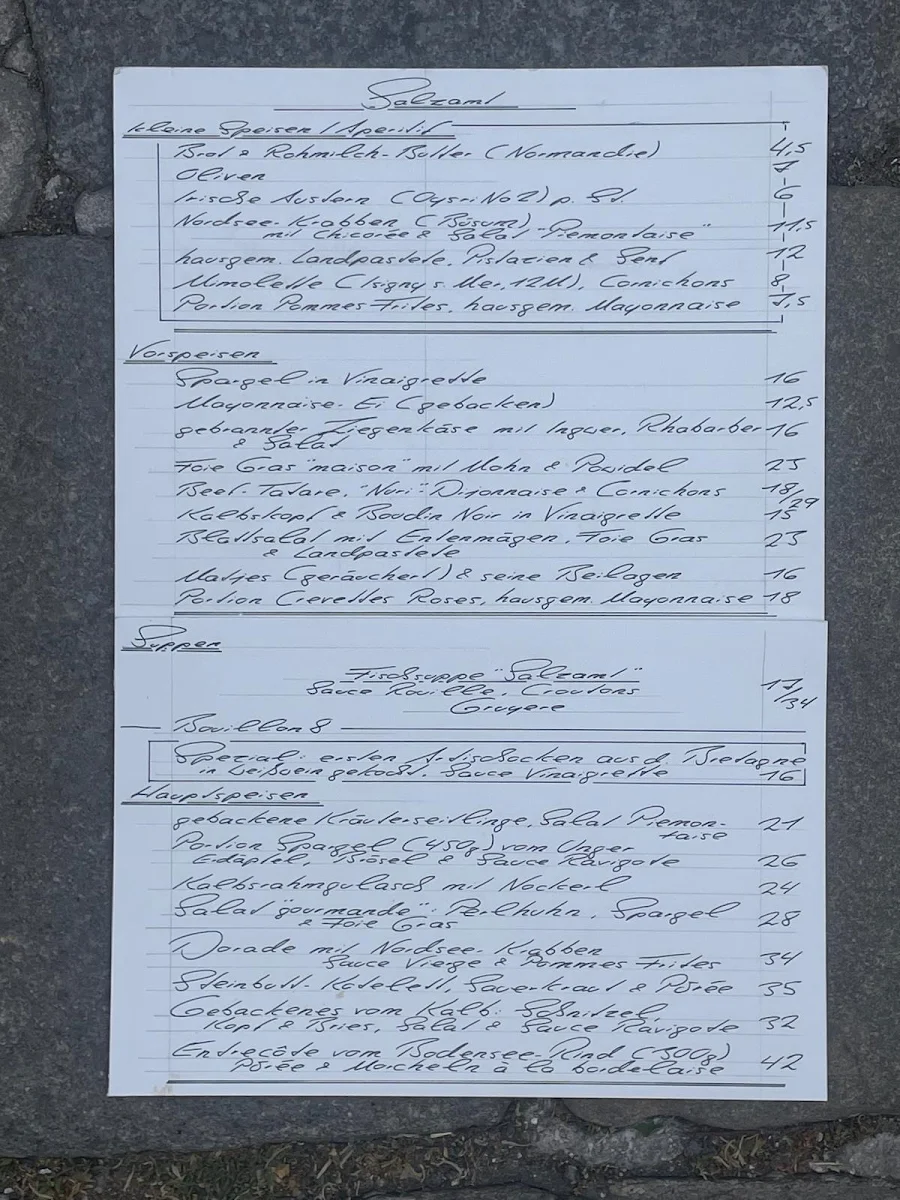 Salzamt
kleine Speisen / Aperitif
Brot & Rohmilch-Butter (Normandie) 4,5
Oliven 7
Irische Austern (Oysri No 2) p. St. 6
Nordsee-Krabben (Büsum)
mit Chicorée & Salat "Piemontaise" 11,5
hausgem. Landpastete, Pistazien & Senf 12
Mimolette (Isigny s. Mer, 12M), Cornichons 8
Portion Pommes Frites, hausgem. Mayonnaise 7,5
Vorspeisen
Spargel in Vinaigrette 16
Mayonnaise-Ei (gebacken) 12,5
gebrannter Ziegenkäse mit Ingwer, Rhabarber 16
& Salat
Foie Gras "maison" mit Mohn & Powidel 25
Beef-Tatare, "Nuri" Dijonnaise & Cornichons 18/29
Kalbskopf & Boudin Noir in Vinaigrette 15
Blattsalat mit Entenmägen, Foie Gras 23
& Landpastete
Matjes (geräuchert) & seine Beilagen 16
Portion Crevettes Roses, hausgem. Mayonnaise 18
Suppen
Fischsuppe "Salzamt" 17/34
Sauce Rouille, Croutons
Gruyere
Bouillon 8
Spezial: ersten Artischocken aus d. Bretagne
in Weißwein gekocht, Sauce Vinaigrette 16
Hauptspeisen
gebackene Kräuterseitlinge, Salat Piemon- 21
taise
Portion Spargel (450g) vom Unger
Erdäpfel, Brösel & Sauce Ravigote 26
Kalbsrahmgulasch mit Nockerl 24
Salat "gourmande": Perlhuhn, Spargel 28
& Foie Gras
Dorade mit Nordsee-Krabben
Sauce Vierge & Pommes Frites 34
Steinbutt-Kotelett, Sauerkraut & Pürée 35
Gebackenes vom Kalb: Schnitzel,
Kopf & Bries, Salat & Sauce Ravigote 32
Entrecôte vom Bodensee-Rind (300g) 42
Pürée & Morcheln à la bordelaise